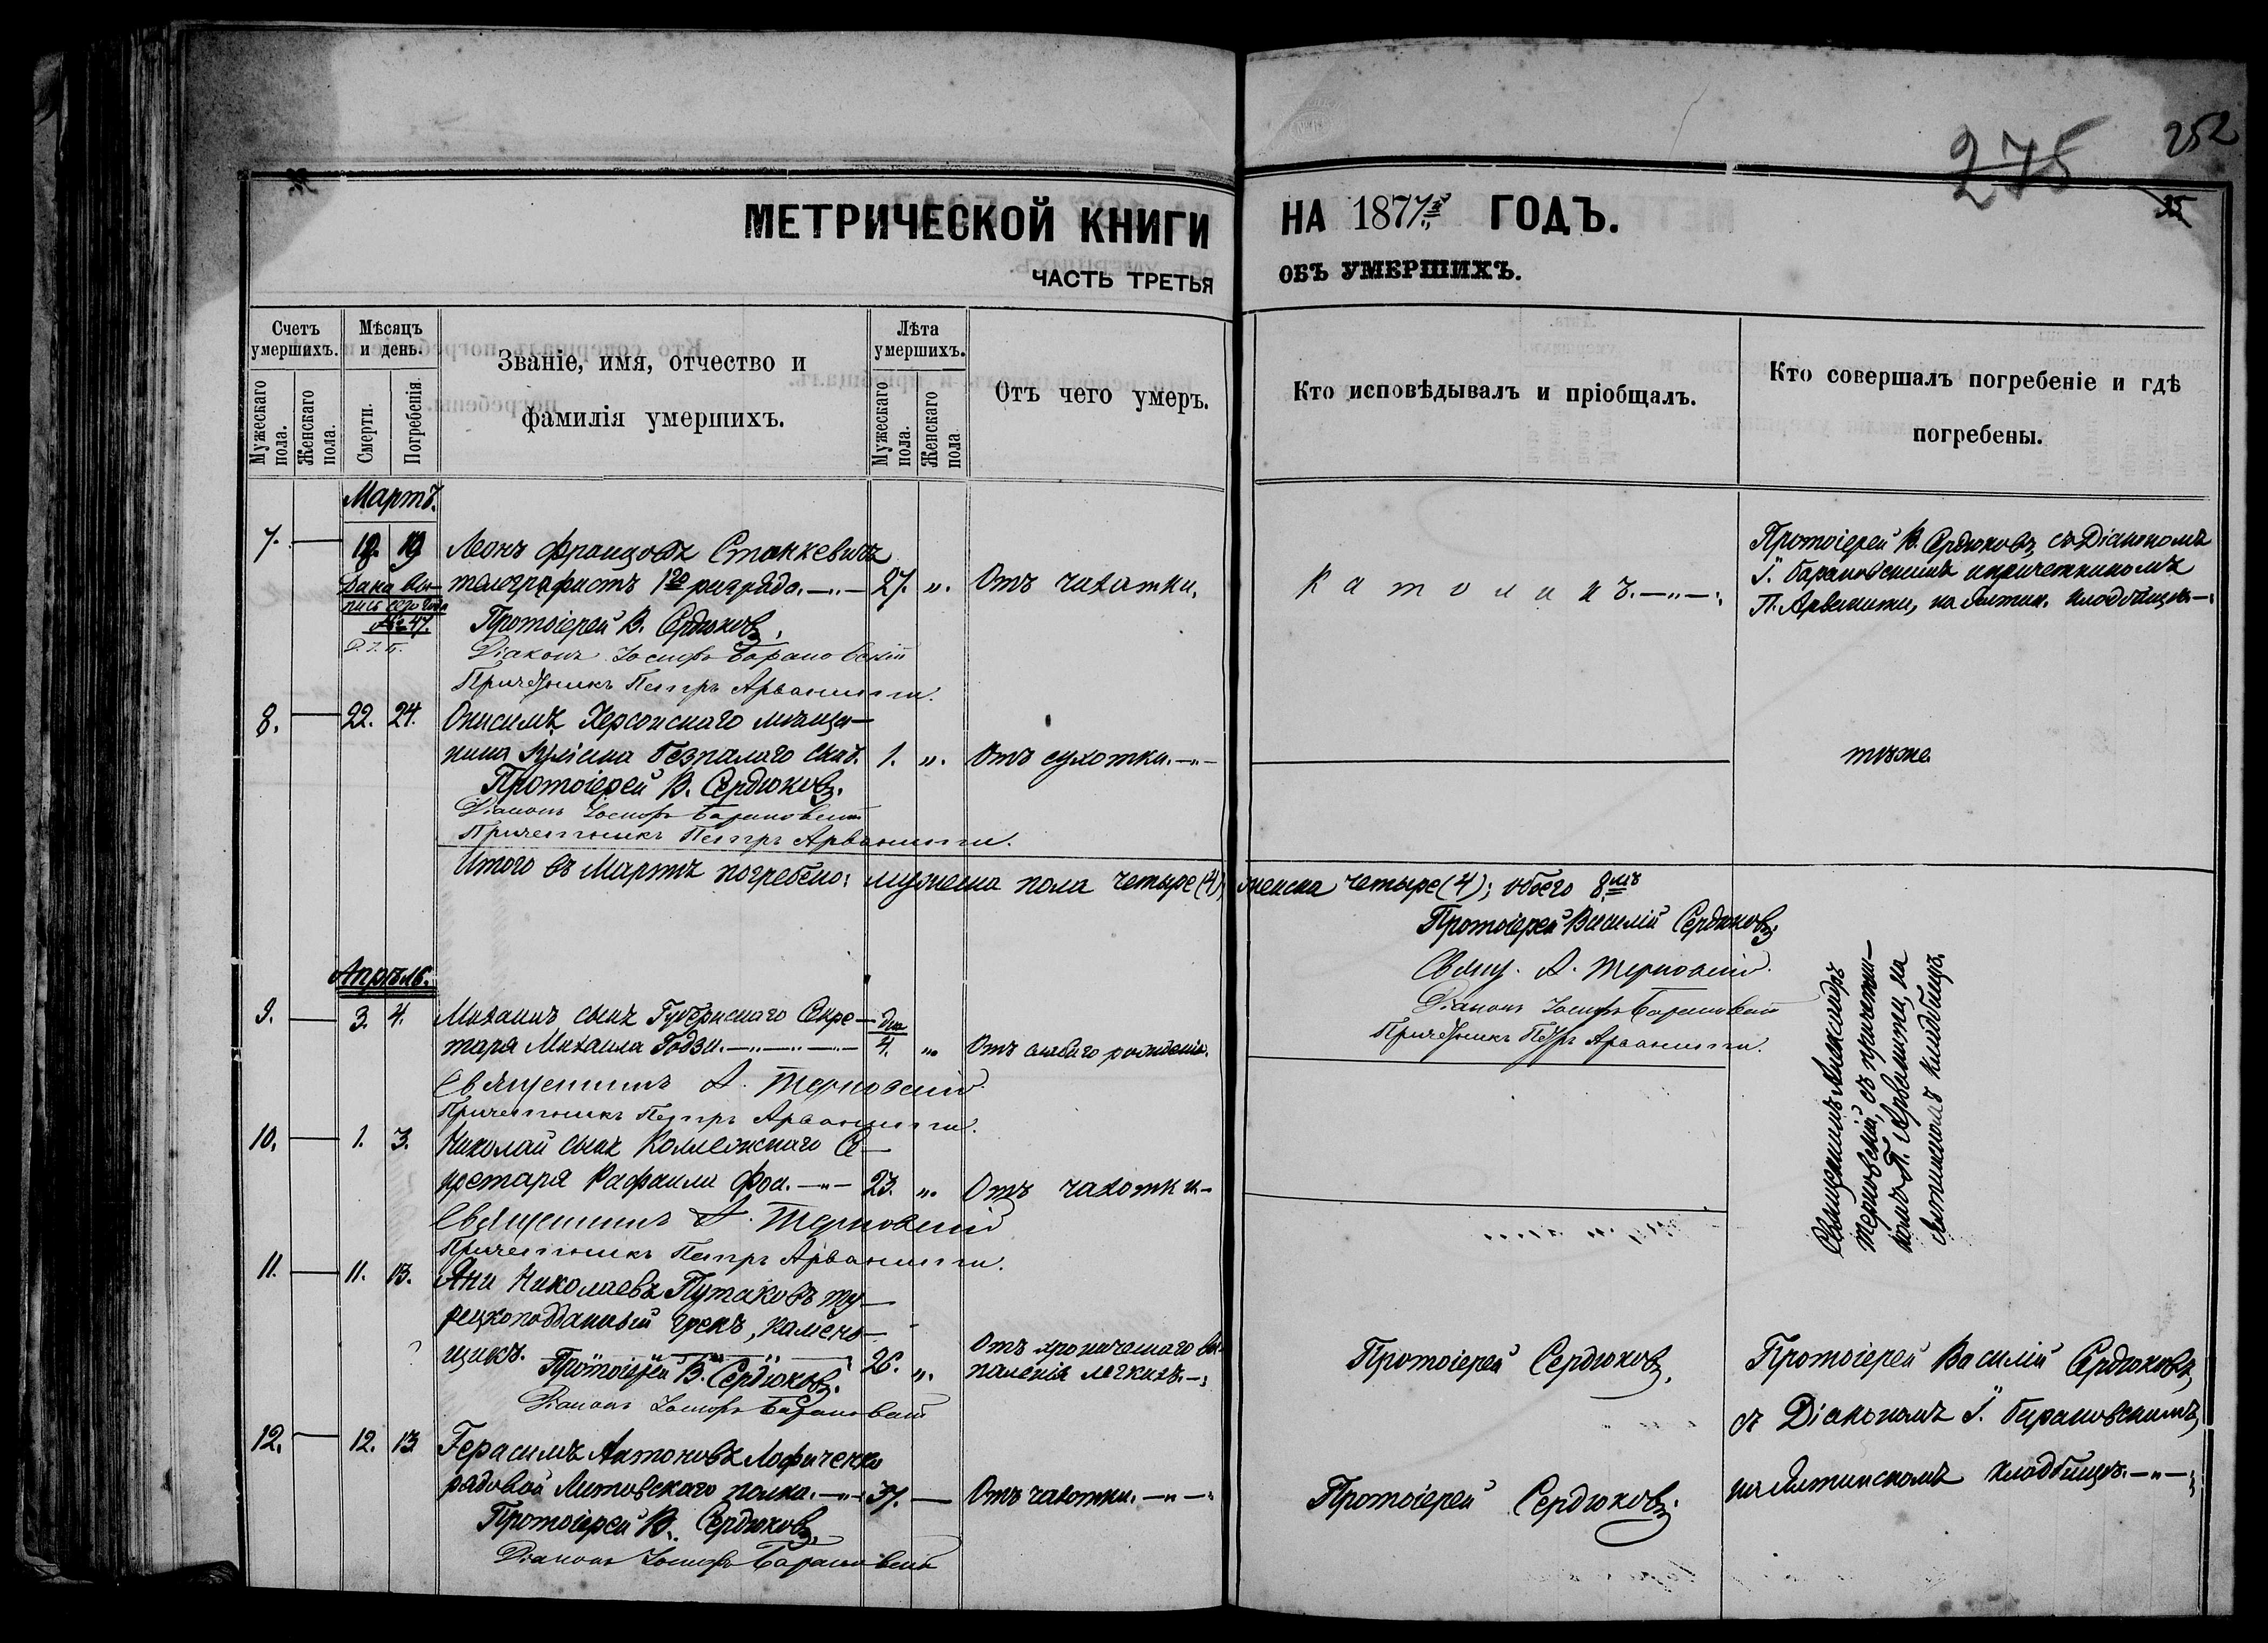 275 252
МЕТРИЧЕСКОЙ КНИГИ НА 1877й ГОДЪ.
ЧАСТЬ ТРЕТЬЯ ОБЪ УМЕРШИХЪ.
Счетъ умершихъ.
Мужескаго пола.
Женскаго пола.
Мѣсяцъ и день.
Смерти.
Погребенія.
Званіе, имя, отчество и
фамилія умершихъ.
Лѣта умершихъ.
Мужескаго пола.
Женскаго пола
Отъ чего умеръ.
Кто исповѣдывалъ и пріобщалъ.
Кто совершалъ погребеніе и гдѣ
погребены.
Мартъ.
7. — 18. 19 Леонъ Францовъ Станкевичъ
телеграфистъ 1го разряда. — 27. „. Отъ чахотки.
Католикъ.
Протоіерей В. Сердюковъ, съ Діакономъ
І. Барановскимъ и причетникомъ
П. Арванити, на Ялтин. кладбищѣ
Дана вы-
пись сего года
№ 47.
Протоіерей В. Сердюковъ.
Діаконъ Іосифъ Барановскій
Причетникъ Петръ Арванити.
8. — 22. 24. Онисимъ, Херсонскаго мѣща-
нина Безпалаго сынъ. 1. „. Отъ сухотки.
тѣже
Протоіерей В. Сердюковъ.
Діаконъ Іосифъ Барановскій
Причетникъ Петръ Арванити.
Итого въ Мартѣ погребено: мужеска пола четыре (4), женска четыре (4); обоего 8мь
Протоіерей Василій Сердюковъ.
Свящ. А. Терновскій.
Діаконъ Іосифъ Барановскій
Причетникъ Петръ Арванити.
Апрѣль.
9. — 3. 4. Михаилъ сынъ Губернскаго Секре-
таря Михаила Годзи. — дня 4. „. Отъ слабаго рожденія.
Священникъ А. Терновскій
Причетникъ Петръ Арванити.
Священникъ Александръ
Терновскій, съ причетни-
комъ П. Арванити, на
Ялтинскомъ кладбищѣ.
10. — 1. 3. Николай сынъ Коллежскаго Се-
кретаря Рафаила Фоа. — 23. „. Отъ чахотки
Священникъ А. Терновскій
Причетникъ Петръ Арванити.
11. — 11. 13. Яни Николаевъ Путаковъ ту-
рецкоподданный грекъ, камень-
щикъ. 26. „. Отъ хроническаго вос-
паленія легкихъ.
Протоіерей В. Сердюковъ.
Діаконъ Іосифъ Барановскій
Протоіерей Сердюковъ.
Протоіерей Василій Сердюковъ,
съ Діакономъ І. Барановскимъ,
на Ялтинскомъ кладбищѣ.
12. — 12. 13 Герасимъ Антоновъ Лофиченко
рядовой Литовскаго полка. — 37. — Отъ чахотки.
Протоіерей Сердюковъ.
Протоіерей В. Сердюковъ.
Діаконъ Іосифъ Барановскій